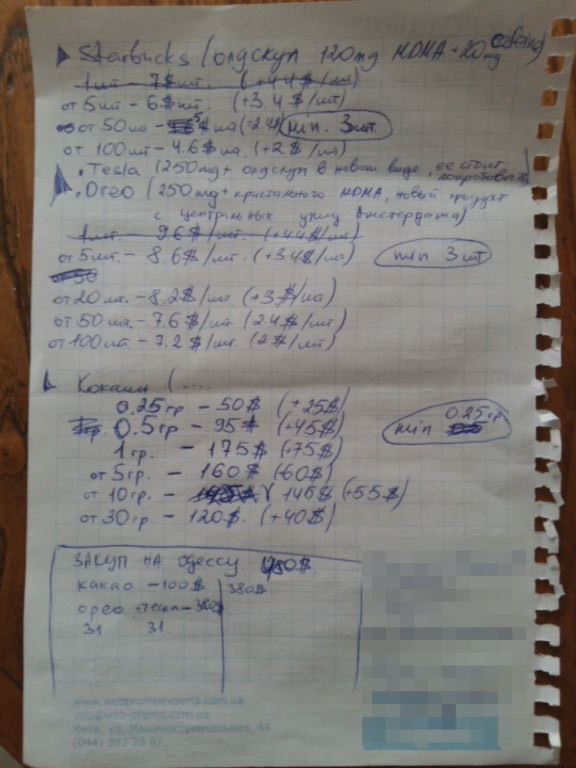 Starbucks (олдскул 120mg MDMA + 20mg cofeine)
1 шт - 7$ шт. (+4.4$/шт)
от 5 шт - 6$ шт. (+3.4$/шт)
от 50 шт - 5$/шт (+2.4$) min. 3 шт.
от 100 шт - 4.6$/шт. (+2$/шт)
. Tesla (250mg + олдскул в новом виде, ее стоит попробовать)
. Oreo (250mg + кристального MDMA, новый продукт
с центральных улиц Амстердама)
1 шт. - 9.6$/шт. (+4.4$/шт)
от 5 шт. - 8.6$/шт. (+3.4$/шт) min 3 шт
от 50
от 20 шт. - 8.2$/шт (+3$/шт)
от 50 шт. - 7.6$/шт. (2.4$/шт)
от 100 шт. - 7.2$/шт. (2$/шт)
Кокаин (....
0.25 гр - 50$ (+25$)
0.5 гр - 95$ (+45$) min 0.25 гр
1 гр. - 175$ (+75$)
от 5 гр. - 160$ (60$)
от 10 гр. - 145$ (+55$)
от 30 гр - 120$. (+40$)
ЗАКУП НА Одессу $.
какао - 100$ 380$.
орео + тесла -
31 31.
www.webpromoexperts.com.ua
info@web-promo.com.ua
Киев, ул. Машиностроительная, 44
(044) 392 29 87